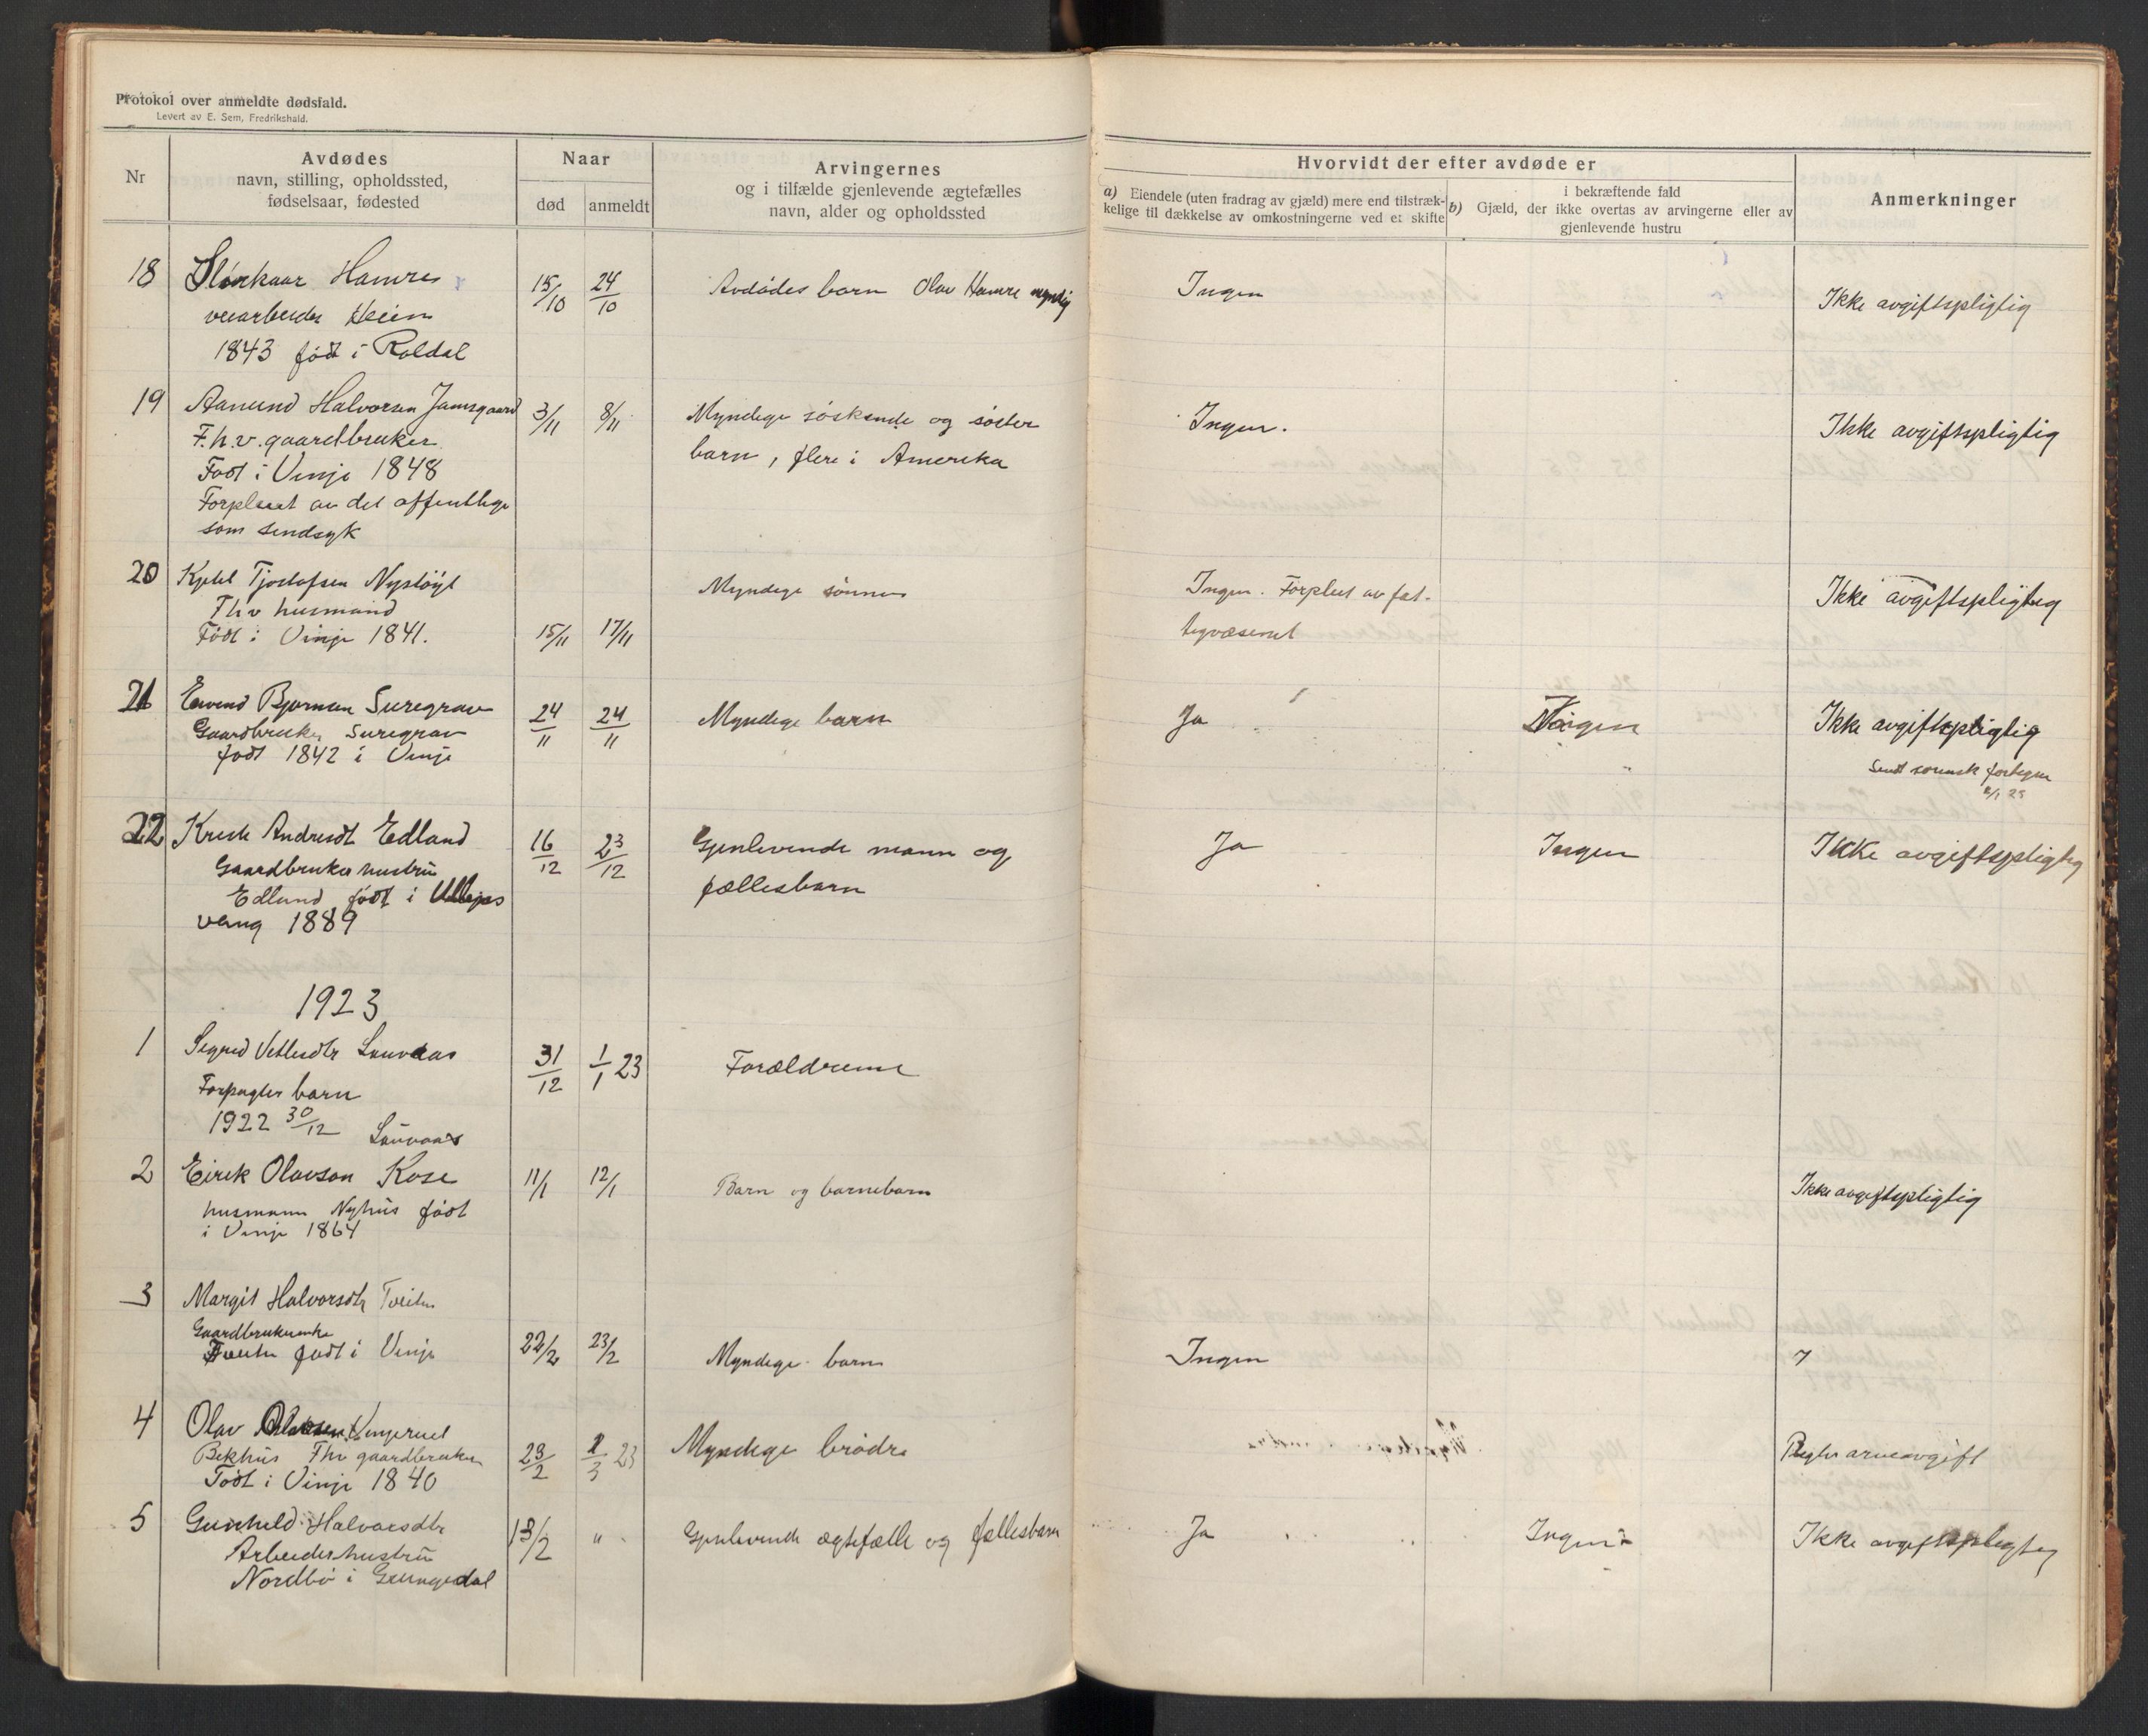 Protokol over anmeldte dødsfald.
Levert av E. Sem, Fredrikshald.
Nr
Avdødes
navn, stilling, opholdssted,
fødselsaar, fødested
Naar
død
anmeldt
Arvingernes
og i tilfælde gjenlevende ægtefælles
navn, alder og opholdssted
Hvorvidt der efter avdøde er
a) Eiendele (uten fradrag av gjæld) mere end tilstræk-
kelige til dækkelse av omkostningerne ved et skifte
i bekræftende fald
b) Gjæld, der ikke overtas av arvingerne eller av
gjenlevende hustru
Anmerkninger
18 Hamre 15/10 24/10 Avdødes barn Olav Hamre myndig Ingen Ikke avgiftspligtig
Heim
1843 født i Roldal
19 Aanund Halvorsen Jamsgaard 3/11 8/11 Myndige søskende og søster Ingen. Ikke avgiftspligtig
F.h.v. gaardbruker barn, flere i Amerika
Født i Vinje 1848
Forpleiet av det offentlige
som sindsyk
20 Kjetil Tjostofsen Nystøyl Myndige sønner Ingen. Forpleiet av fat- Ikke avgiftspligtig
Fhv husmand tigvæsenet
Født i Vinje 1841. 15/11 17/11
21 Eivind Bjørnsen Suregrav 24/11 24/11 Myndige barn Ja Ingen Ikke avgiftspligtig
Gaardbruker Suregrav
født 1842 i Vinje
Sendt sorensk
22 Andresdt Edland 16/12 23/12 Gjenlevende mann og Ja Ingen Ikke avgiftspligtig
Gaardbruker hustru fællesbarn
Edland født i Ullens
vang 1889
1923
1 Sigrid Vetlesdtr Lauvaas 31/12 1/1 23 Forældrene
Forpagter barn
1922 30/12 Lauvaas
2 Eirik Olavson Kose 11/1 12/1 Barn og barnebarn Ikke avgiftspligtig
husmann Nyhus født
i Vinje 1864
3 Margit Halvorsdtr Tveiten
Gaardbrukerenke
Tveiten født i Vinje 22/2 23/2 Myndige barn Ingen
4 Olav Vinjerui
Bekhus Fhv gaardbruker 23/2 2/3 23 Myndige brødre arveavgift
Født i Vinje 1840
5 Gunhild Halvorsdtr 13/2 " Gjenlevende ægtefælle og fællesbarn Ja Ingen Ikke avgiftspligtig
Arbeiderhustru
Nordbø i Grungedal